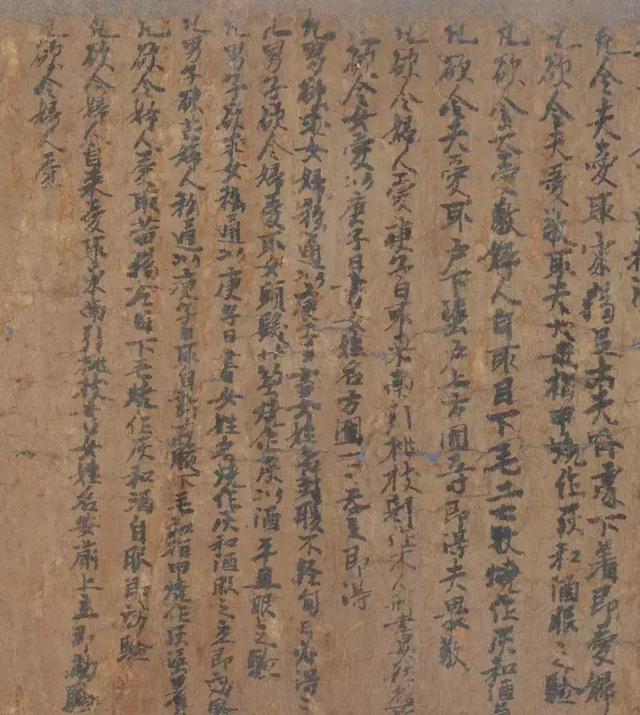 凡令夫愛取 夫臍處下着即愛婦
凡欲令夫愛敬取夫大母指甲燒作灰和酒服之驗
凡欲令夫愛敬婦人自取目下毛二七枚燒作灰和酒
凡欲令夫愛取戶下 方圓五寸即得夫畏敬
凡欲令婦人愛庚子日取東南引桃枝則作木人書
欲令女愛以庚子日書女姓名方圓 即得
凡男欲求女婦私通以庚子日書女姓名封腹不經旬日必得
凡男子欲令婦愛取女頭髮廿莖燒作灰以酒 服之驗
凡男子欲求女私通以庚子日書女姓名燒作灰和酒服之立即効驗
凡男子欲求婦人私通以庚子日取自 腋下毛和指甲燒作灰
凡欲令婦人愛取苦楊 目下毛燒作灰和酒自服即効驗
凡欲令婦人自來愛取東南引桃枝書女姓名安廁上立即効驗
凡欲令婦人愛